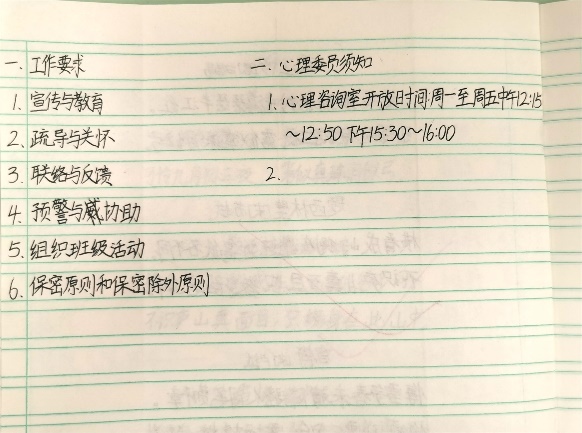 一. 工作要求
1. 宣传与教育
2. 疏导与关怀
3. 联络与反馈
4. 预警与协助
5. 组织班级活动
6. 保密原则和保密除外原则
二. 心理委员须知
1. 心理咨询室开放时间:周一至周五中午12:15
~12:50 下午15:30~16:00
2.